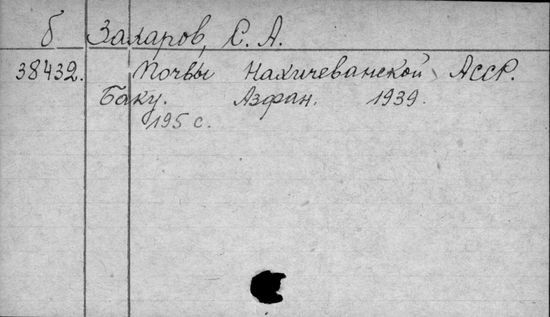 б Захаров, С. А.
38432. Почвы Нахичеванской АССР.
Баку. Азфан. 1939.
195 с.